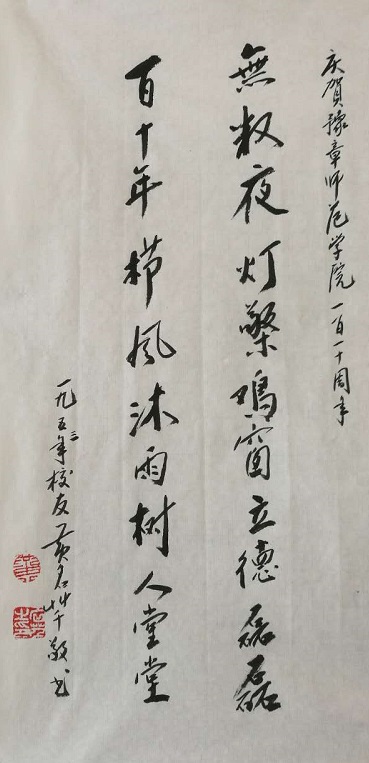 庆賀豫章师范学院一百一十周年
無数夜灯檠鸡窗立德磊磊
百十年栉风沐雨树人堂堂
一九五三年校友黄名芊敬书